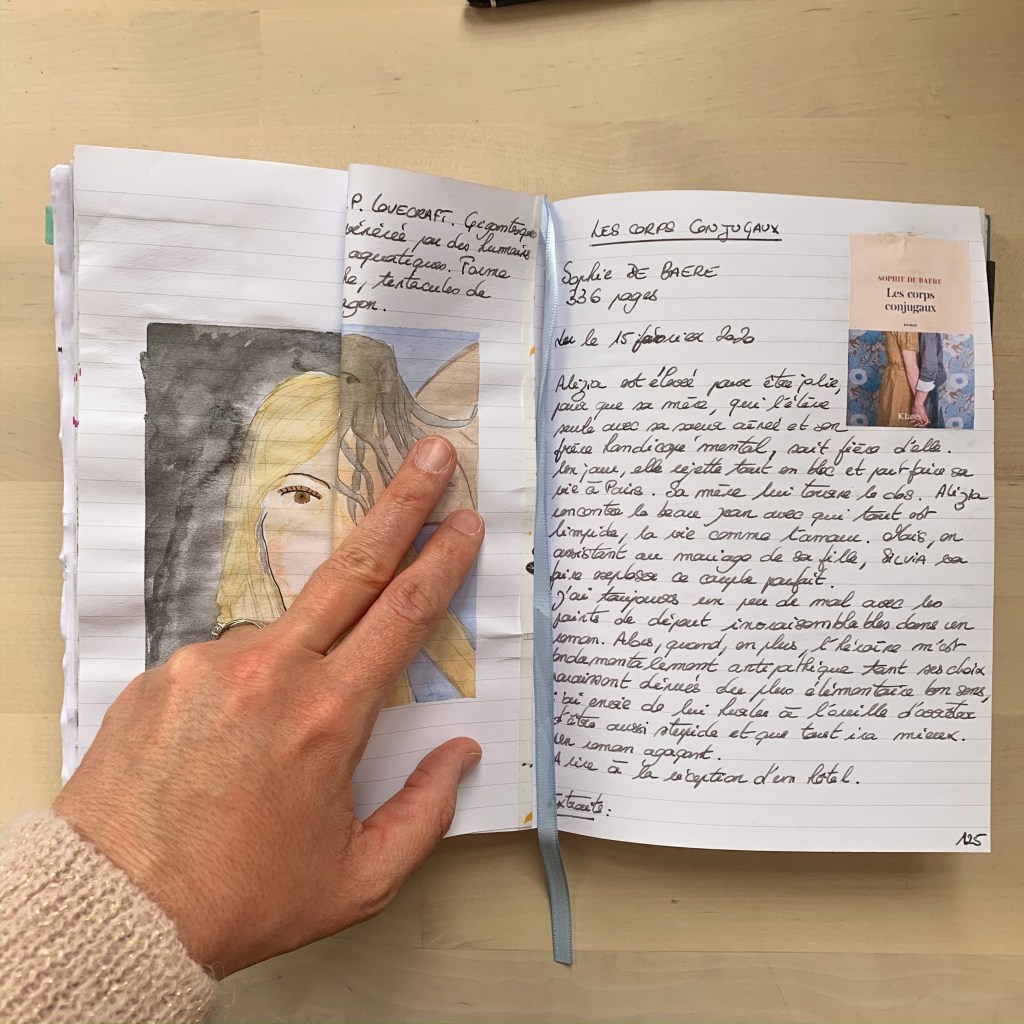 P. LOVECRAFT. Gigantesque
vénérée par des humains
aquatiques. Forme
tentacules de
LES CORPS CONJUGAUX
Sophie DE BAERE
336 pages
Lu le 15 février 2020
SOPHIE DE BAERE
Les corps
conjugaux
roman
Alizia est élevée pour être jolie,
pour que sa mère, qui l'élève
seule avec sa soeur aînée et son
frère handicapé mental, soit fière d'elle.
Un jour, elle rejette tout en bloc et part faire sa
vie à Paris. Sa mère lui tourne le dos. Alizia
rencontre le beau Jean avec qui tout est
limpide, la vie comme l'amour. Mais, en
assistant au mariage de sa fille, SILVIA va
faire exploser ce couple parfait.
J'ai toujours un peu de mal avec les
points de départ invraisemblables dans un
roman. Alors, quand, en plus, l'héroïne m'est
fondamentalement antipathique tant ses choix
paraissent dénués du plus élémentaire bon sens,
j'ai envie de lui hurler à l'oreille d'arrêter
d'être aussi stupide et que tout ira mieux.
Un roman agaçant.
A lire à la réception d'un hôtel.
Extraits :
125